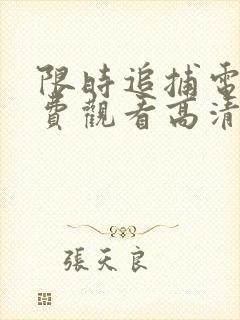 限時追捕電
費觀看高清
張天良